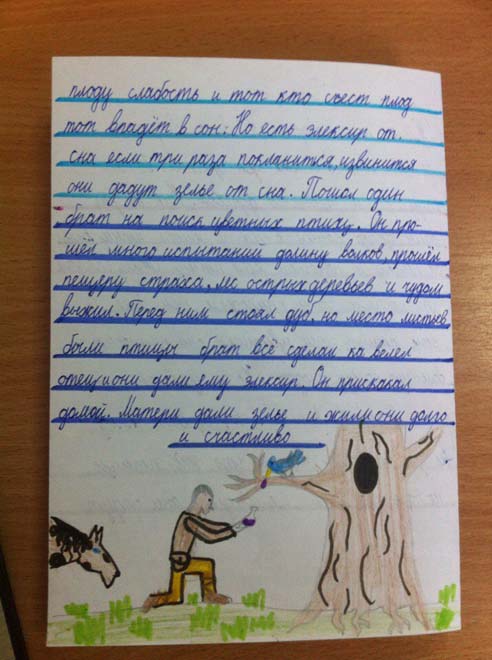 плоду слабость и тот кто съест плод
тот впадёт в сон. Но есть элексир от
сна если три раза покланится, извинится
они дадут зелье от сна. Пошол один
брат на поиск цветных птиху. Он про-
шёл много испытаний долину волков, прошёл
пещеру страха, лес острых деревьев и чудом
выжил. Перед ним стоял дуб, но место листьев
были птицы брат всё сделал ка велел
отец и они дали ему элексир. Он прискакал
домой. Матери дали зелье и жили они долго
и счастливо